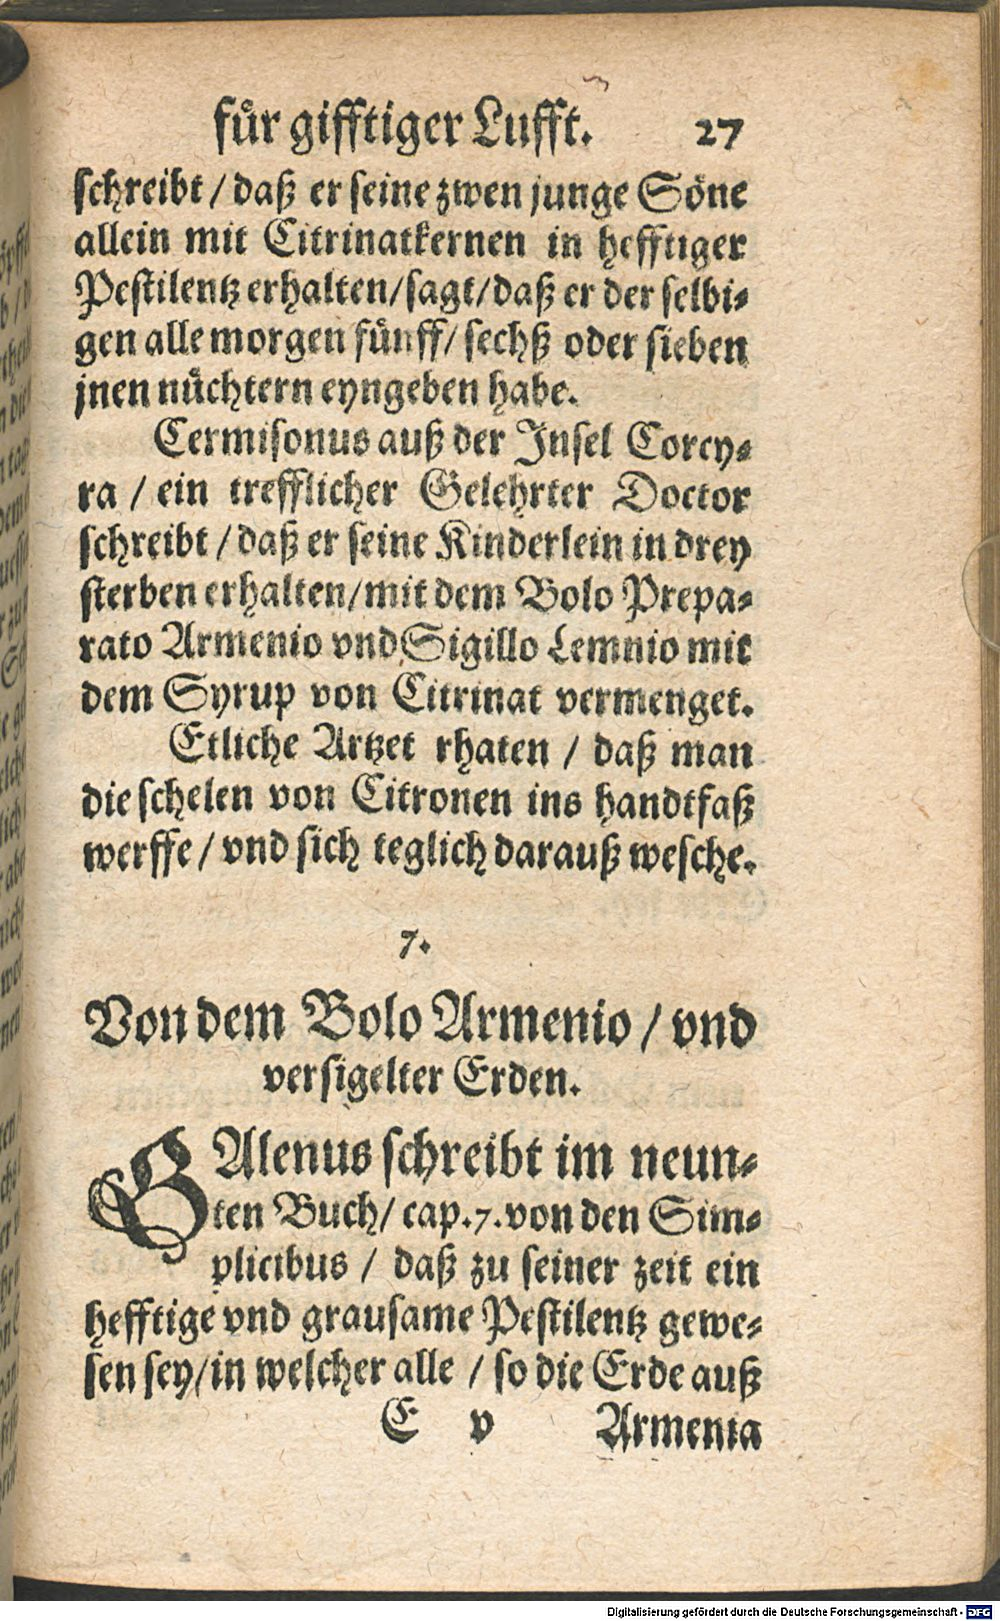 fuͤr gifftiger Lufft. 27
schreibt / daß er seine zwen junge Soͤne
allein mit Citrinatkernen in hefftiger
Pestilentz erhalten / sagt / daß er der selbi⸗
gen alle morgen fuͤnff / sechß oder sieben
jnen nuͤchtern eyngeben habe.
Cermisonus auß der Insel Corcy⸗
ra / ein trefflicher Gelehrter Doctor
schreibt / daß er seine Kinderlein in drey
sterben erhalten / mit dem Bolo Prepa⸗
rato Armenio vnd Sigillo Lemnio mit
dem Syrup von Citrinat vermenget.
Etliche Artzet rhaten / daß man
die schelen von Citronen ins handtfaß
werffe / vnd sich teglich darauß wesche.
7.
Von dem Bolo Armenio / vnd
versigelter Erden.
GAlenus schreibt im neun⸗
ten Buch / cap. 7. von den Sim⸗
plicibus / daß zu seiner zeit ein
hefftige vnd grausame Pestilentz gewe⸗
sen sey / in welcher alle / so die Erde auß
E v Armenia
Digitalisierung gefördert durch die Deutsche Forschungsgemeinschaft - DFG